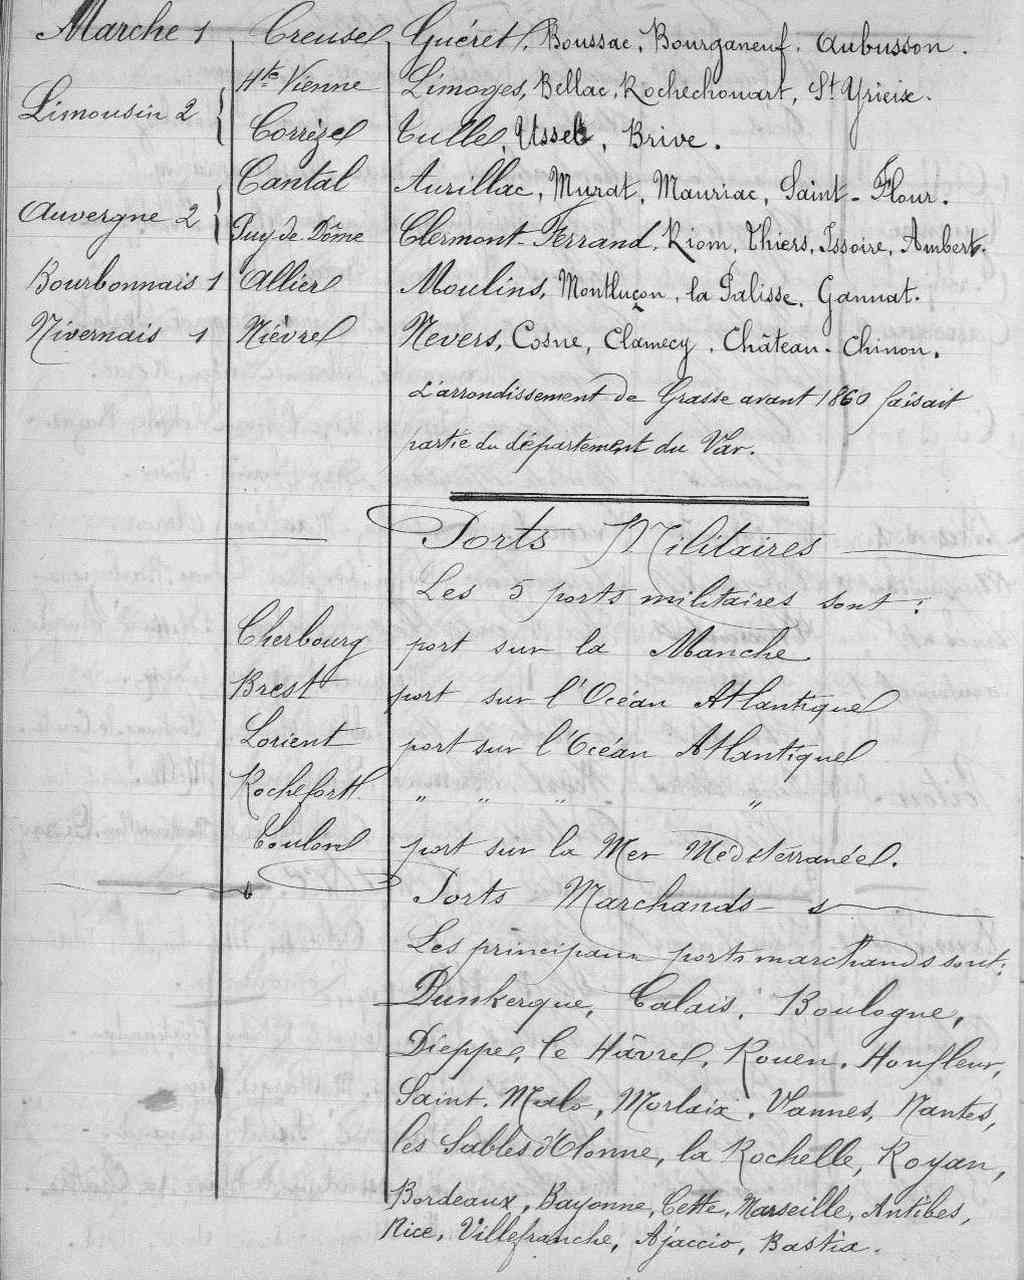 Marche 1 Creuse Guéret, Boussac, Bourganeuf, Aubusson.
Hte Vienne Limoges, Bellac, Rochechouart, St Yrieix.
Limousin 2
Corrèze Tulle, Ussel, Brive.
Cantal Aurillac, Murat, Mauriac, Saint-Flour.
Auvergne 2
Puy de Dôme Clermont-Ferrand, Riom, Thiers, Issoire, Ambert.
Bourbonnais 1 Allier Moulins, Montluçon, la Palisse, Gannat.
Nivernais 1 Nièvre Nevers, Cosne, Clamecy, Château-Chinon.
L'arrondissement de Grasse avant 1860 faisait
partie du département du Var.
Ports Militaires
Les 5 ports militaires sont :
Cherbourg port sur la Manche
Brest port sur l'Océan Atlantique
Lorient port sur l'Océan Atlantique
Rochefort " " " "
Toulon port sur la Mer Méditérranée.
Ports Marchands
Les principaux ports marchands sont:
Dunkerque, Calais, Boulogne,
Dieppe, le Hâvre, Rouen, Honfleur,
Saint-Malo, Morlaix, Vannes, Nantes,
les Sables d'Olonne, la Rochelle, Royan,
Bordeaux, Bayonne, Cette, Marseille, Antibes,
Nice, Villefranche, Ajaccio, Bastia.